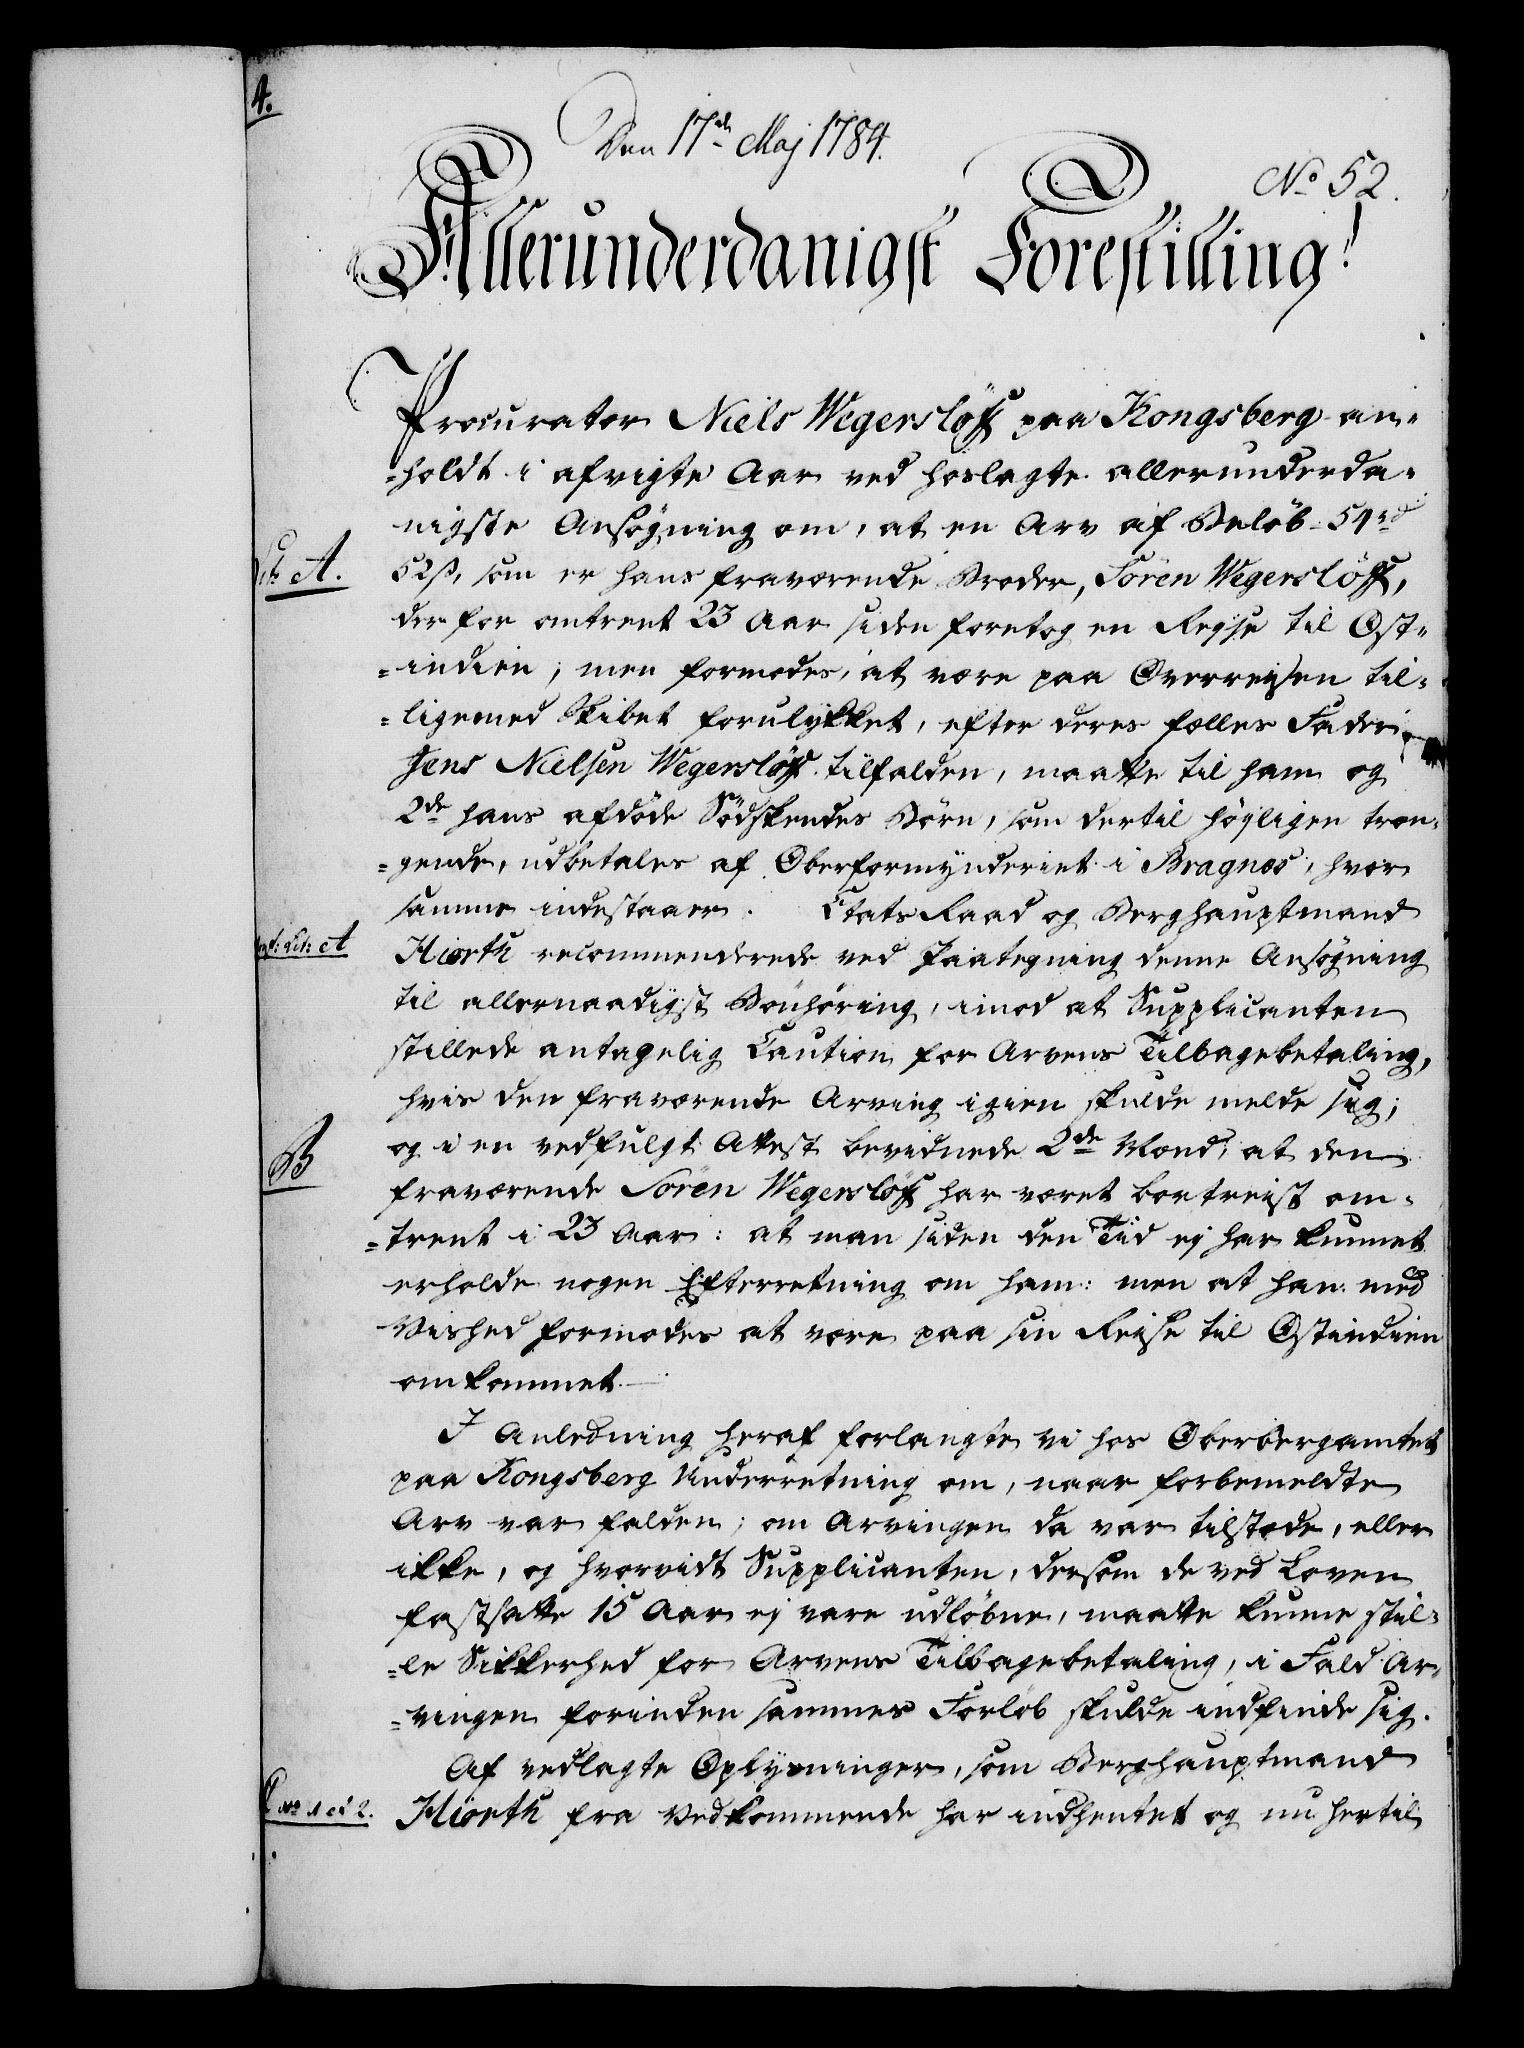 4.
Den 17de Maj 1784.
No 52.
Allerunderdanigst Forestilling!
Procurator Niels Wegersløff paa Kongsberg an-
=holdt i afvigte Aar ved hoslagte allerunderda-
nigste Ansøgning om, at en Arv af Beløb 54rd
Lit: A.
52ß, som er hans fraværende Broder, Sören Wegerslöff,
der for omtrent 23 Aar siden foretog en Rejse til Ost-
=indien, men formodes, at være paa Overreisen til-
=ligemed Skibet forulykket, efter deres fælles Fader
Jens Nielsen Wegerslöff tilfalden, maatte til ham og
2de hans afdöde Södskendes Börn, som dertil höyligen træn-
=gende, udbetales af Oberformynderiet i Bragnæs, hvor
samme indestaaer. Etats Raad og Berghauptmand
Lit: A
Hiorth recommenderede ved Paategning denne Ansøgning
til allernaadigst Bönhöring, imod at Supplicanten
stillede antagelig Caution for Arvens Tilbagebetaling,
hvis den fraværende Arving igien skulde melde sig;
B
og i en vedfulgt Attest bevidnede 2de Mænd, at den
fraværende Sören Wegerslöff har været bortreist om-
=trent i 23 Aar: at man siden den Tid ej har kunnet
erholde nogen Efterretning om ham: men at han med
Vished formodes at være paa sin Reise til Ostindien
omkommet.
I Anledning heraf forlangte vi hos Oberbergamtet
paa Kongsberg Underretning om, naar forbemeldte
Arv var falden; om Arvingen da var tilstæde, eller
ikke, og hvorvidt Supplicanten, dersom de ved Loven
fastsatte 15 Aar ej vare udløbne, maatte kunne stil-
=le Sikkerhed for Arvens Tilbagebetaling, i Fald Ar-
=vingen forinden sammes Forløb skulde indfinde sig.
Af vedlagte Oplysninger, som Berghauptmand
C No 1 et 2.
Hiorth fra Vedkommende har indhentet og nu hertil